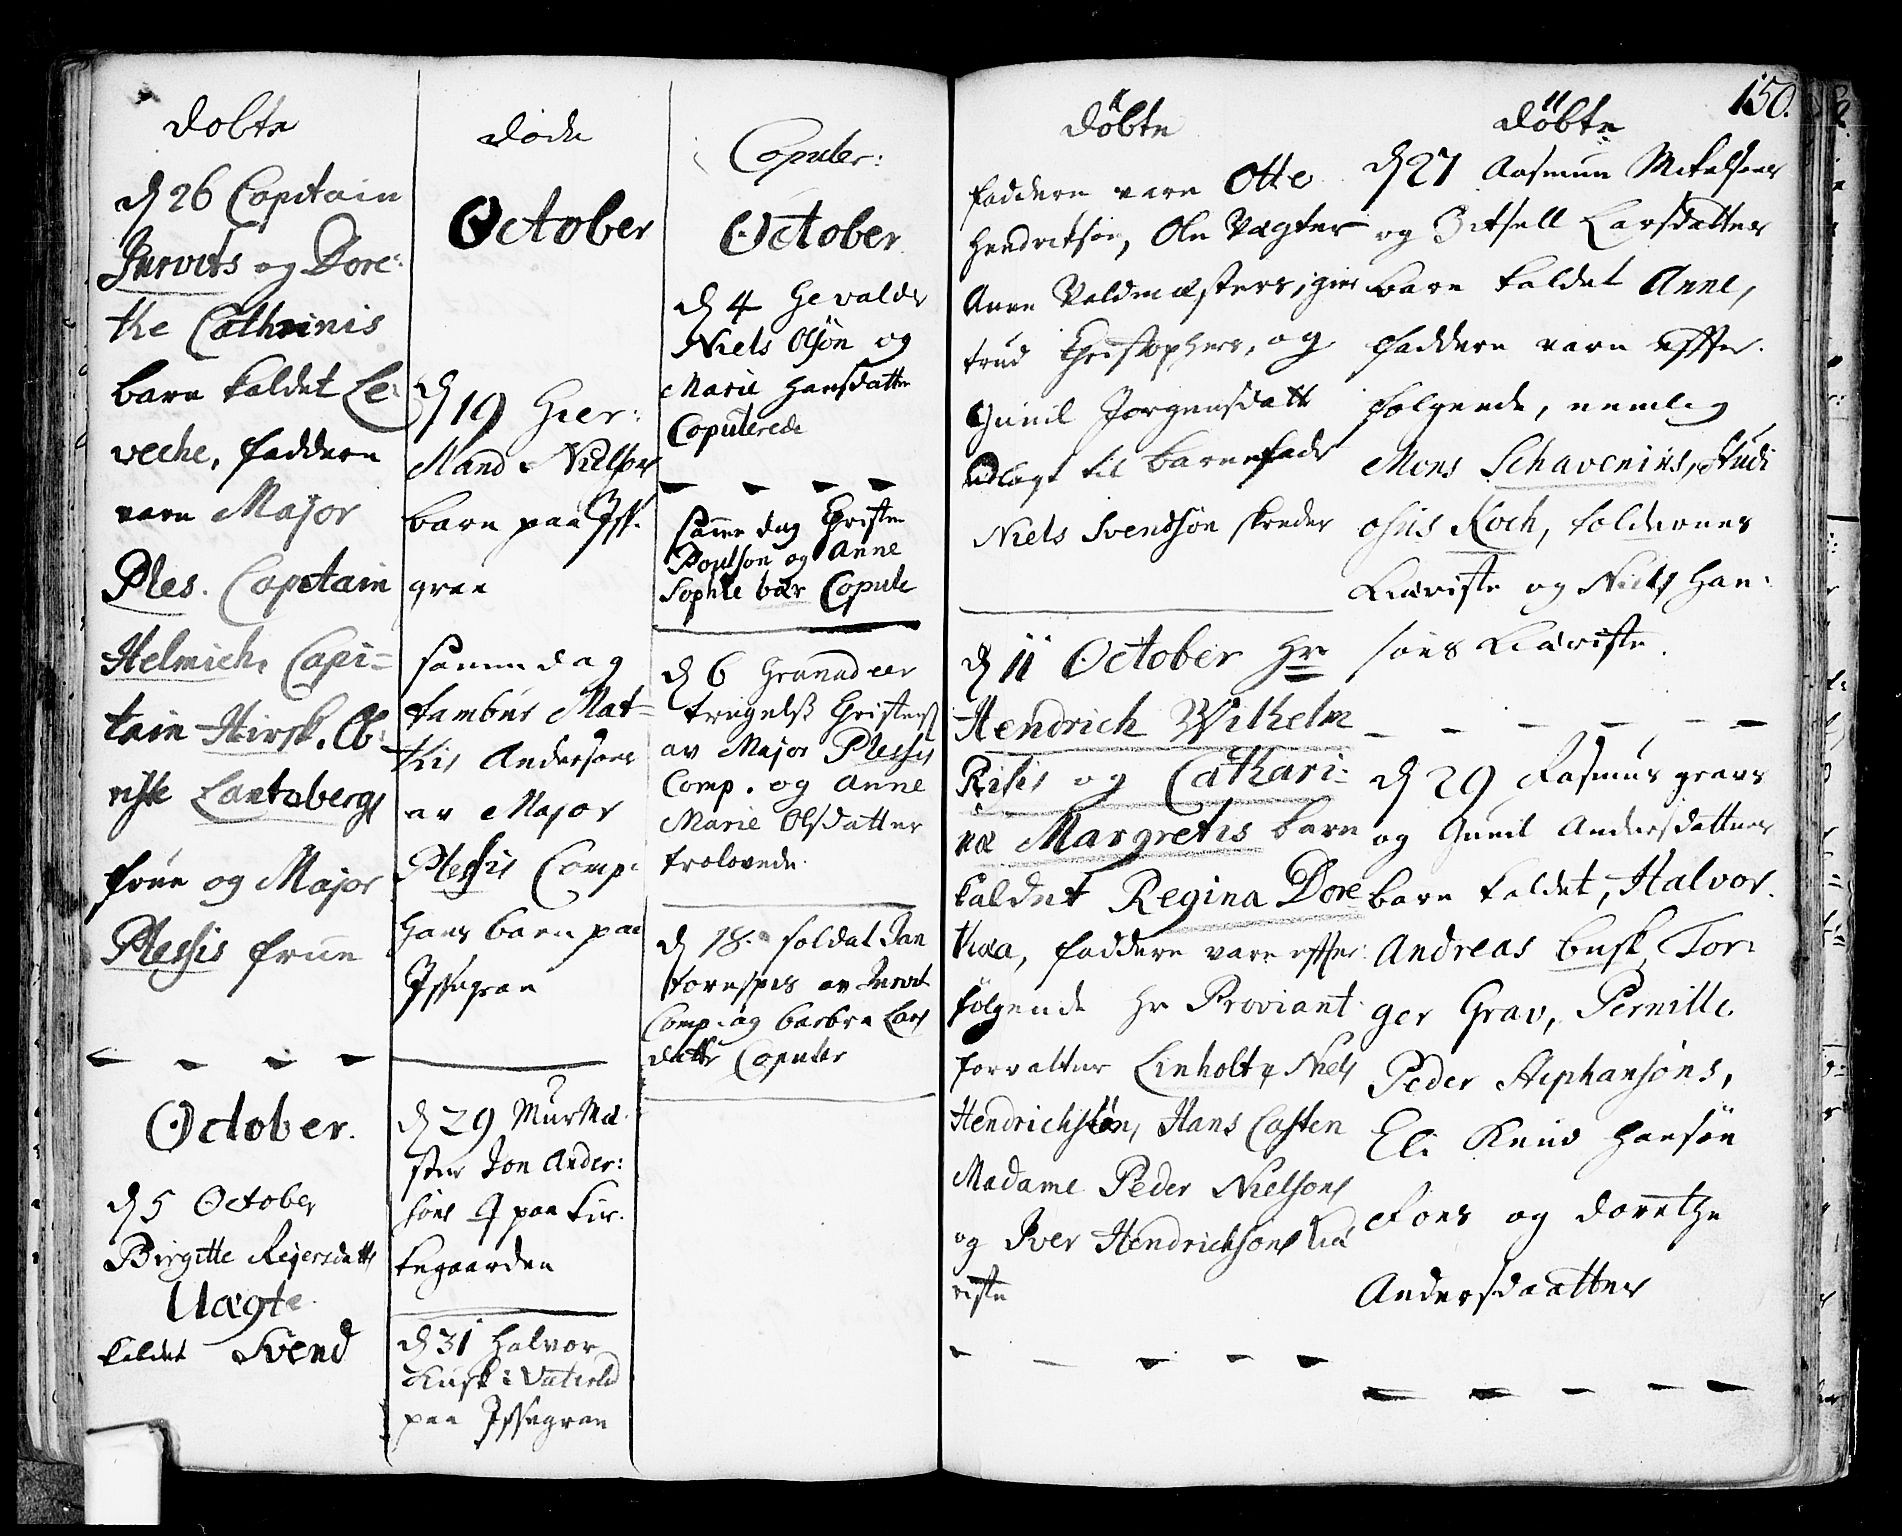 döbte
d 26 Capitain
Jurvits og Dore:
the Cathrinis
barn kaldet Le:
veche, faddere
vare Major
Ples. Capetain
Helmich, Capi=
tain Hirsk. Ob:
riste Lantsbergs
frue og Major
Plessis frue
October.
d 5 October
Birgitte Rejersdatt
Uægte
kaldet Svend
döde
October
d 19 Gier:
Mand Nielses
barn paa Iss.
gran
samme dag
tambur Mat=
this Andersens
av Major
Plessis Comp.
hans barn paa
Issegran
d 29 Mur Mæ.
ster Jon Ander:
söns q paa kir.
kegaarden
d 31 Halvor
Kusk: Vaterld
paa Issegran
Copuler:
October
d 4 Gevalder
Niels Olsön og
Marie Hansdatter
Copulerede
samme dag Christen
Poulson og Anne
Sophie bær Copule
d 6 Granadeer
Christens
av Major Plessis
Comp. og Anne
Marie Olsdatter
trolovede.
d 18. soldat Jan
av Jurvit
Comp. og barbra Lars
datter Copuler
döbte
faddere vare Otte
Hendrikson, Ole Vægter
Anne Valdmesters, gier
trud Christophers, og
Gunil Jorgensdatt
udlagt til barnefader
Niels Svendsön skreder
d 11 October Hr
Hendrich Wilhelm
Risis og Cathari:
næ Margretis barn
kaldet Regina Dore
thæa, faddere vare effter:
følgende Hr Proviant
forvalter Linholt, Niels
Hendrichsön, Hans Casten
Madame Peder Nielsons
og Iver Hendrichsons kiæ
riste
150.
döbte
d 27 Aasmun Mikelsens
og Sitsell Larsdatter
barn kaldet Anne,
faddere vare effter.
følgende, nemlig
Mons Schavenius, Studi
osus Koch, tolderens
kiæriste og Niels Han:
söns kiæriste.
d 29 Rasmus gravs
og Gunil Andersdatters
barn kaldet, Halvor.
Andreas busk, Tor:
ger Grav, Pernille
Peder Stephansöns,
Eli Knud Hansön
Fons og dorethe
Andersdaatter